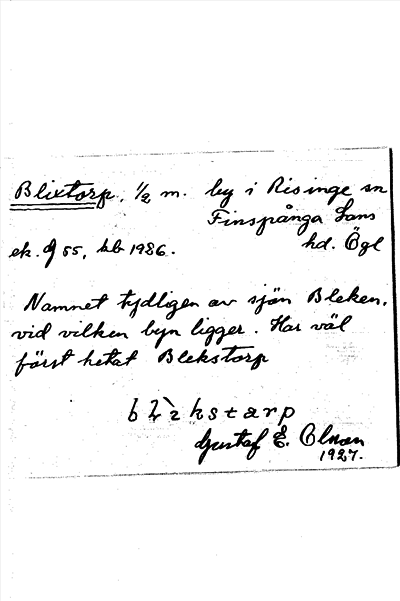 Blixtorp, 1/2 m. by i Risinge sn
Finspånga Läns
ek. 55, kb 1986. hd. Ögl
Namnet tydligen av sjön Bleken,
vid vilken byn ligger. Har väl
först hetat Blekstorp
Gustaf E. Olsson
1927.